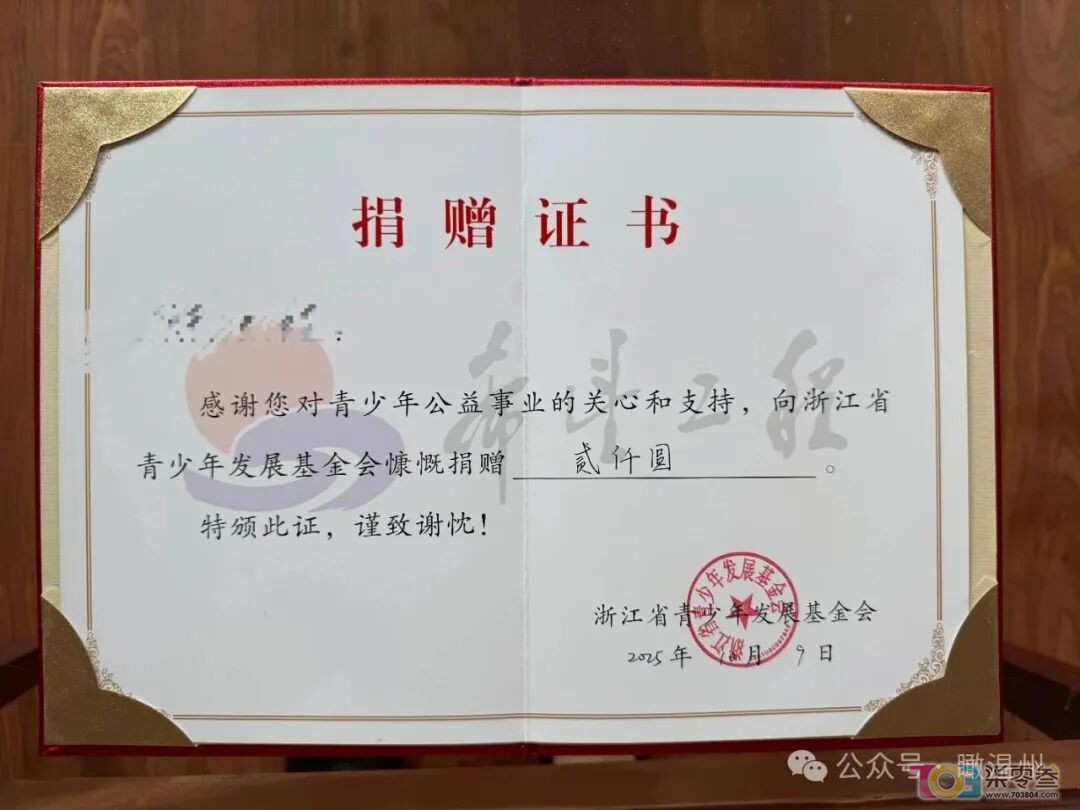 捐赠证书
希望工程
感谢您对青少年公益事业的关心和支持，向浙江省
青少年发展基金会慷慨捐赠 贰仟圆 。
特颁此证，谨致谢忱！
浙江省青少年发展基金会
浙江省青少年发展基金会
2025年 月 9日
公众号·瞰温州
703 柒零叁
www.703804.com